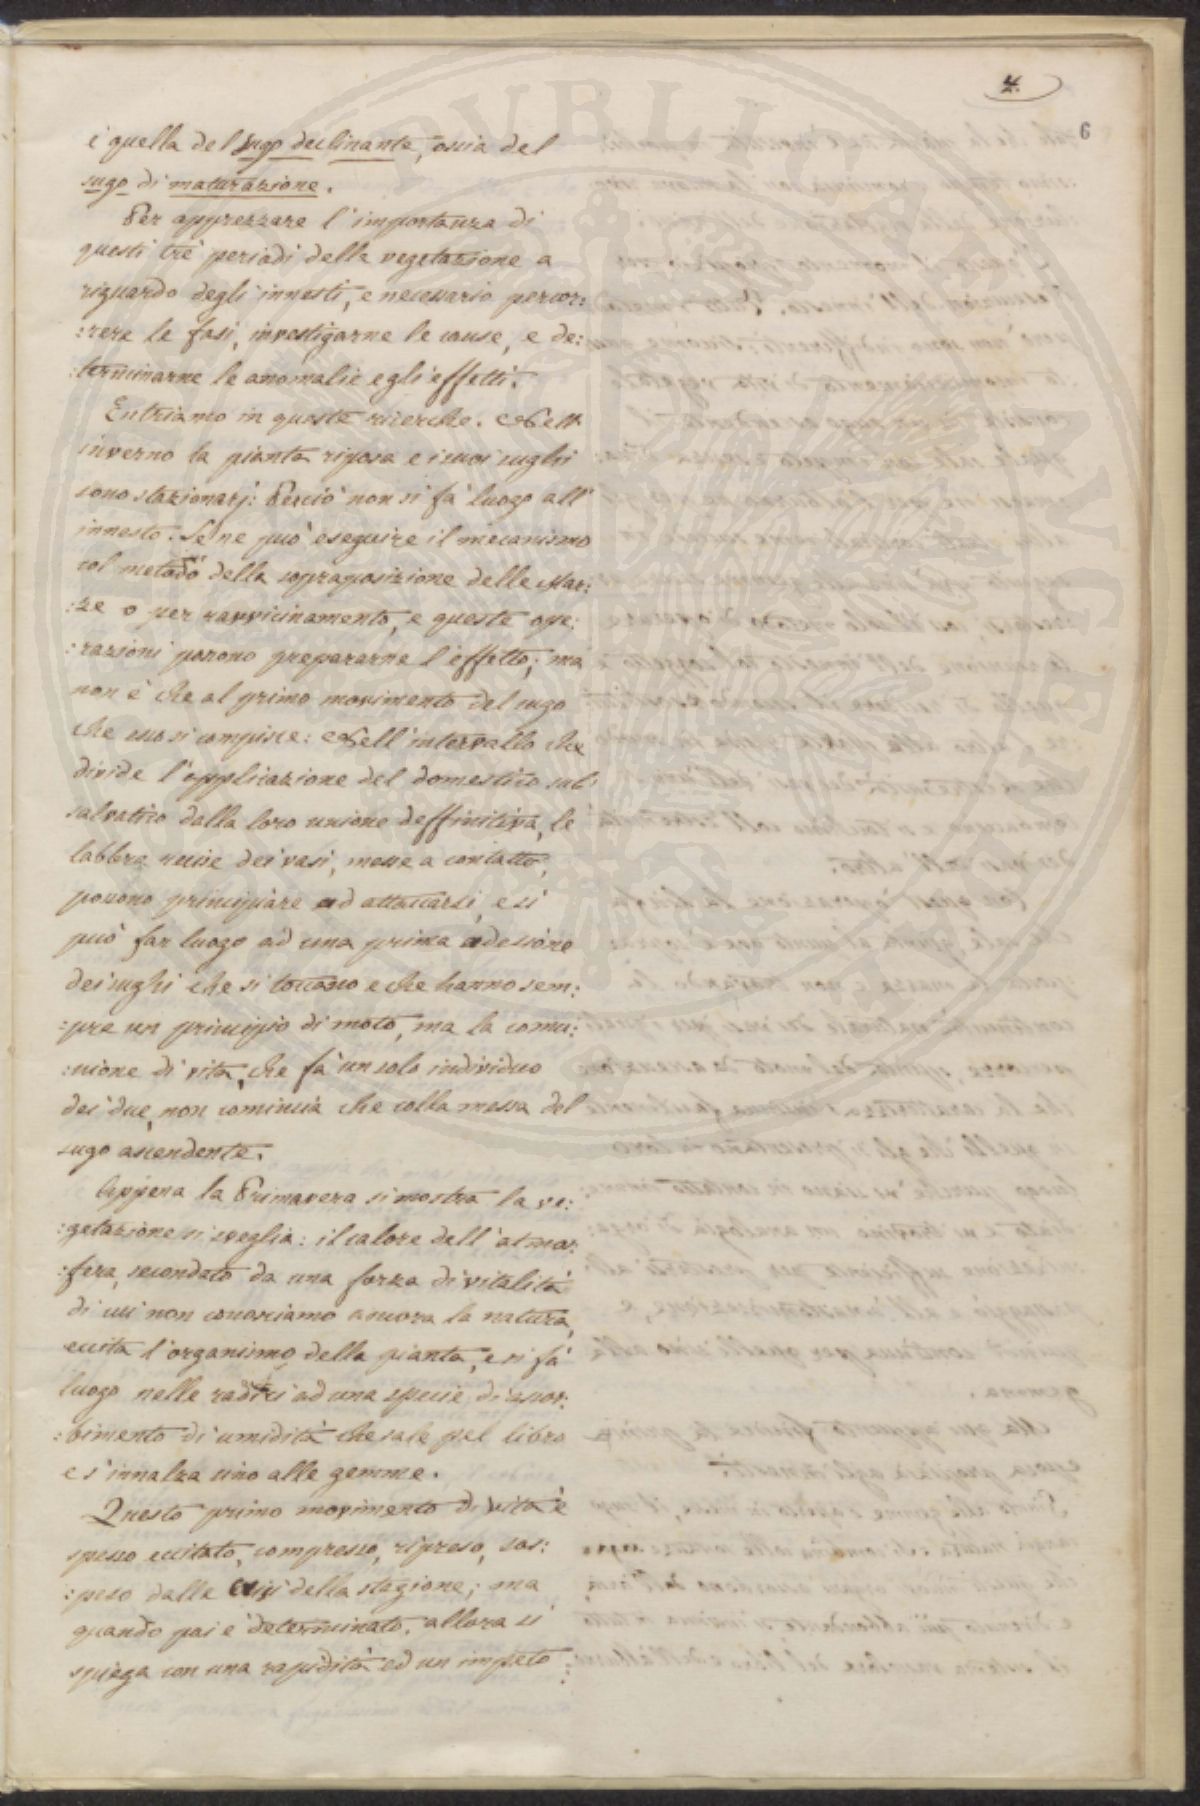 4.
6
è quella del sugo declinante, ossia del
sugo di maturazione.
Per apprezzare l'importanza di
questi trè periodi della vegetazione a
riguardo degli innesti, e necessario percor:
:rere le fasi, investigarne le cause, e de:
:terminarne le anomalie e gli effetti.
Entriamo in queste ricerche. Nell'
inverno la pianta riposa e i suoi sughi
sono stazionarj: Perciò non si fà luogo all'
innesto. Se ne può eseguire il mecanismo
col metodo della soprapposizione delle Mar:
:ze o per ravvicinamento, e queste ope:
:razioni possono prepararne l'effetto; ma
non è che al primo movimento del sugo
che esso si compisce: Nell'intervallo che
divide l'applicazione del domestico sul
salvatico dalla loro unione deffinitiva, le
labbra recise dei vasi, messe a contatto,
possono principiare ad attaccarsi, e si
può far luogo ad una prima adesione
dei sughi che si toccano e che hanno sem:
:pre un principio di moto, ma la comu:
:nione di vita, che fà un solo individuo
dei due, non comincia che colla messa del
sugo ascendente.
Appena la Primavera si mostra la ve:
:getazione si sveglia: il calore dell'atmos:
:fera, secondato da una forza di vitalità
di cui non conosciamo ancora la natura,
eccita l'organismo della pianta, e si fà
luogo nelle radici ad una specie di assor:
:bimento di umidità che sale pel libro
e s'innalza sino alle gemme.
Questo primo movimento di vita è
spesso eccitato, compresso, ripreso, sos:
:peso dalle crisi della stagione; ma
quando poi è determinato, allora si
spiega con una rapidità ed un impeto